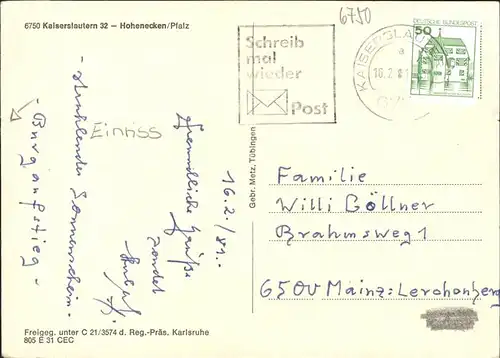 6750 Kaiserslautern 32 – Hohenecken/Pfalz
6750
Schreib
mal
wieder
Post
KAISERSLAU
a
16.2.81
DEUTSCHE BUNDESPOST
50
16.2./81.-
Freundliche Grüße
sendet
- strahlender Sonnenschein -
- Burgaufstieg -
Einriss
Gebr. Metz, Tübingen
Familie
Willi Göllner
Brahmsweg 1
6500 Mainz-Lerchenberg
Freigeg. unter C 21/3574 d. Reg.-Präs. Karlsruhe
805 E 31 CEC